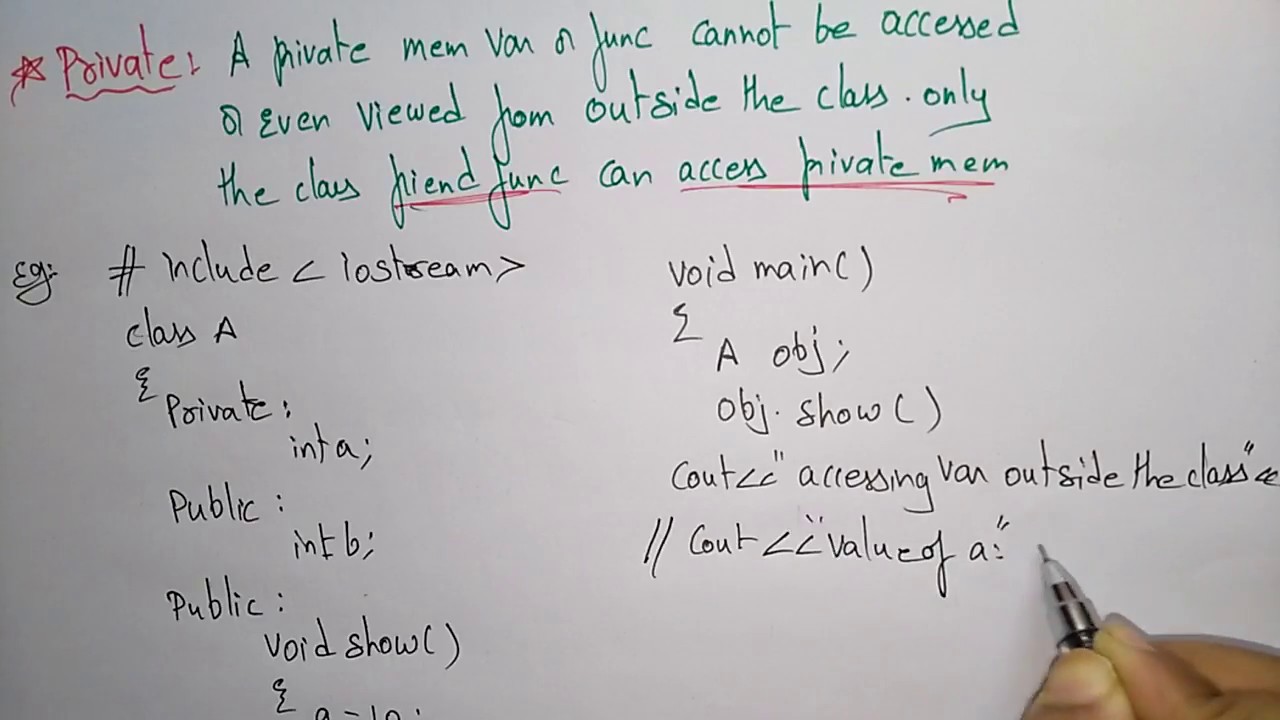 * Private: A private mem var or func cannot be accessed
or even viewed from outside the class. only
the class friend func can access private mem
Eg: # include < iostream>
class A
{ Private:
int a;
Public:
int b;
Public:
void show()
{
a = 10;
void main()
{
A obj;
obj. show()
Cout<<" accessing var outside the class"<<
// Cout <<"value of a:"